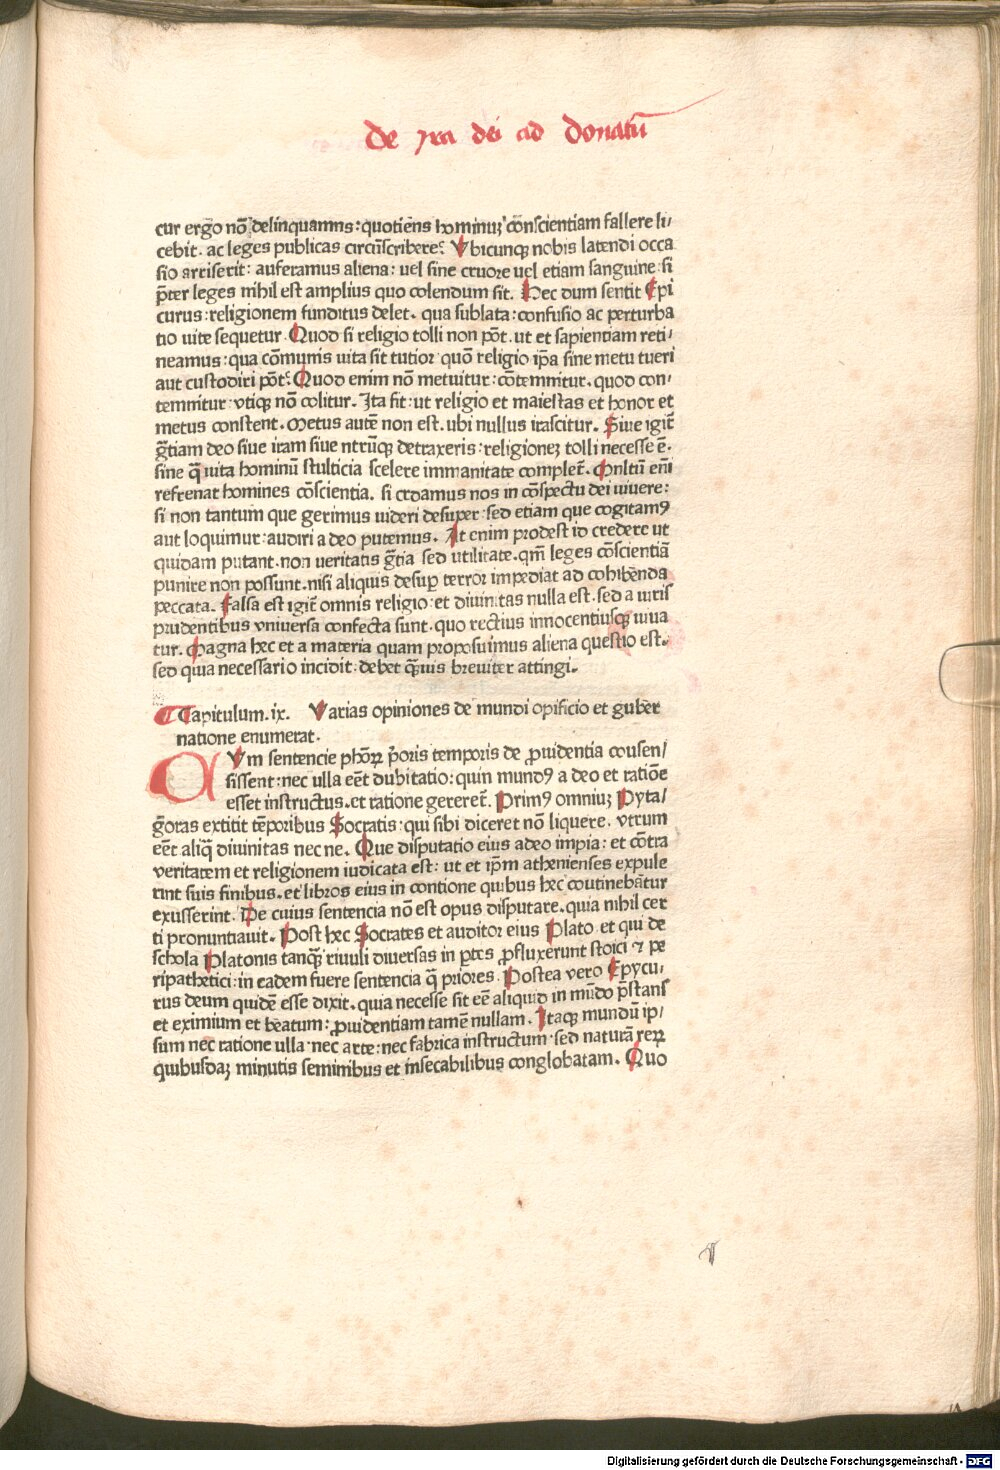 De yra dei ad Donatū
cur ergo nō delinquamns: quotiens hominuꝫ cōnscientiam fallere li/
cebit. ac leges publicas circūscribere? Vbicunqꝫ nobis latendi occa
sio arriserit: auferamus aliena: uel sine cruore uel etiam sanguine: si
p̄ter leges nihil est amplius quo colendum sit. Hec dum sentit Epi
curus: religionem funditus delet. qua sublata: confusio ac perturba
tio uite sequetur Quod si religio tolli non pōt. ut et sapientiam reti/
neamus: qua cōmunis uita sit tutior quō religio ip̄a sine metu tueri
aut custodiri pōt? Quod enim nō metuitur: cōtemnitur. quod con/
temnitur vtiqꝫ nō colitur. Ita fit: ut religio et maiestas et honor et
metus constent. Metus autē non est. ubi nullus irascitur. Siue igit̄
gr̄tiam deo siue iram siue ntrūqꝫ detraxeris: religioneꝫ tolli necesse ē.
sine q̄ uita hominū stulticia scelere immanitate complet̄. Mnltū eni
refrenat homines cōscientia. si crdamus nos in cōspectu dei uiuere:
si non tantum que gerimus uideri desuper: sed etiam que cogitamꝰ
aut loquimur: audiri a deo putemus. At enim prodest id credere ut
quidam putant. non ueritatis gr̄tia sed utilitate. qm̄ leges cōscientiā
punire non possunt. nisi aliquis desuꝑ terror impediat ad cohibenda
peccata. Falsa est igit̄ omnis religio: et diuinitas nulla est. sed a uiris
prudentibus vniuersa confecta sunt. quo rectius innocentiusqꝫ uiua
tur. Magna hec et a materia quam proposuimus aliena questio est.
sed quia necessario incidit: debet q̄uis breuiter attingi.
Capitulum. ix. Varias opiniones de mundi opificio et guber
natione enumerat.
CVm sentencie phōꝝ p̄oris temporis de ꝓuidentia cousen/
sissent: nec ulla eēt dubitatio: quin mundꝰ a deo et ratiōe
esset instructus. et ratione gereret̄. Primꝰ omniuꝫ Pyta/
gōras extitit tēporibus Socratis: qui sibi diceret nō liquere. vtrum
eēt aliq̄ diuinitas nec ne. Que disputatio eius adeo impia: et cōtra
veritatem et religionem iudicata est: ut et ip̄m athenienses expule
rint suis finibus. et libros eius in contione quibus hec coutinebātur
exusserint. De cuius sentencia nō est opus disputare. quia nihil cer
ti pronuntiauit. Post hec Socrates et auditor eius Plato et qui de
schola Platonis tanqꝫ riuuli diuersas in ꝑtes ꝓfluxerunt stoici ⁊ pe
ripathetici: in eadem fuere sentencia q̄ priores Postea vero Epycu/
rus deum quidē esse dixit. quia necesse sit eē aliquid in mūdo p̄stans
et eximium et beatum: ꝓuidentiam tamē nullam. Itaqꝫ mundū ip/
sum nec ratione ulla nec arte: nec fabrica instructum sed naturā reꝝ
quibusdaꝫ minutis seminibus et insecabilibus conglobatam. Quo
Digitalisierung gefördert durch die Deutsche Forschungsgemeinschaft - DFG